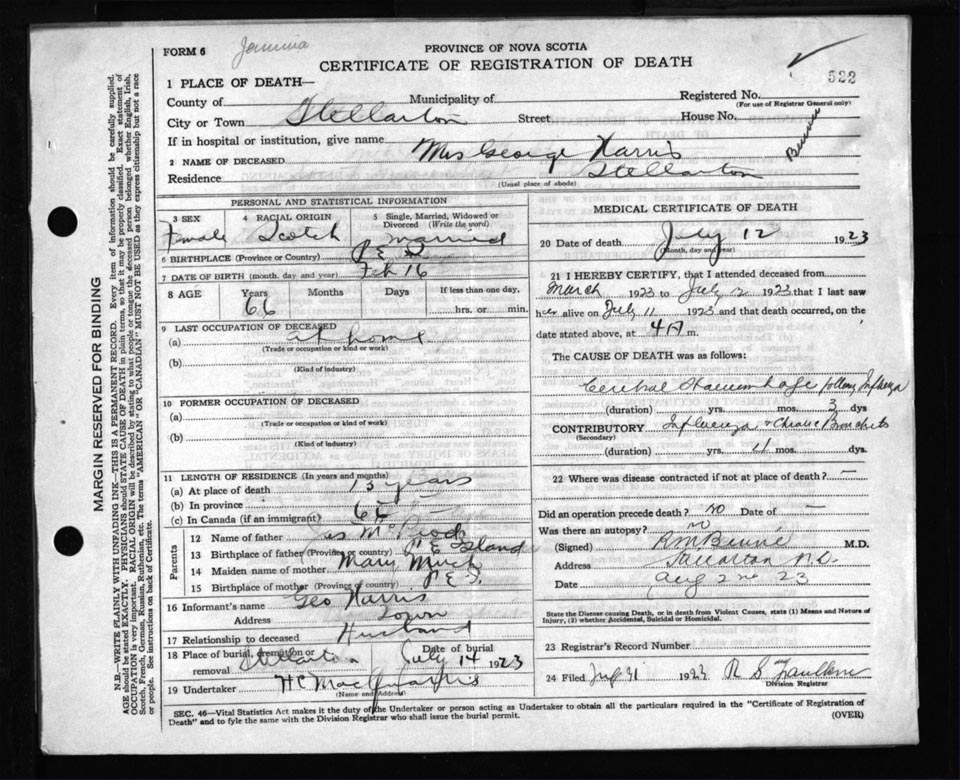 FORM 6 Jemima
PROVINCE OF NOVA SCOTIA
CERTIFICATE OF REGISTRATION OF DEATH
522
1 PLACE OF DEATH—
County of Municipality of Registered No.
(For use of Registrar General only)
City or Town Stellarton Street House No.
If in hospital or institution, give name
2 NAME OF DECEASED Mrs George Harris
Residence Stellarton
(Usual place of abode)
PERSONAL AND STATISTICAL INFORMATION
3 SEX 4 RACIAL ORIGIN 5 Single, Married, Widowed or Divorced (Write the word)
Female Scotch Married
6 BIRTHPLACE (Province or Country) P E I
7 DATE OF BIRTH (month, day and year) Feb 16
8 AGE Years Months Days If less than one day,
66 hrs. or min.
9 LAST OCCUPATION OF DECEASED
(a) at home
(Trade or occupation or kind or work)
(b)
(Kind of industry)
10 FORMER OCCUPATION OF DECEASED
(a)
(Trade or occupation or kind of work)
(b)
(Kind of industry)
11 LENGTH OF RESIDENCE (In years and months)
(a) At place of death 13 years
(b) In province 
(c) In Canada (if an immigrant)
Parents
12 Name of father Jas
13 Birthplace of father (Province or country) P E Island
14 Maiden name of mother Mary
15 Birthplace of mother (Province or country) P E I.
16 Informant's name Geo Harris
Address Town
17 Relationship to deceased Husband
18 Place of burial, cremation or removal Stellarton Date of burial July 14 1923
19 Undertaker H C
(Name and Address)
MEDICAL CERTIFICATE OF DEATH
20 Date of death July 12 1923
(Month, day and year)
21 I HEREBY CERTIFY, that I attended deceased from
March 1923 to July 12 1923 that I last saw
her alive on July 11 1923 and that death occurred, on the
date stated above, at 4 A m.
The CAUSE OF DEATH was as follows:
Cerebral Haemorrhage follow Influenza
(duration) yrs. mos. 3 dys
CONTRIBUTORY Influenza & Chronic Bronchitis
(Secondary)
(duration) yrs. mos. dys
22 Where was disease contracted if not at place of death? —
Did an operation precede death? no Date of —
Was there an autopsy? no
(Signed) M.D.
Address Stellarton N.S.
Date Aug 2nd 23
State the Disease causing Death, or in death from Violent Causes, state (1) Means and Nature of
Injury, (2) whether Accidental, Suicidal or Homicidal.
23 Registrar's Record Number
24 Filed 1923 R S Faulkner
Division Registrar
SEC. 46—Vital Statistics Act makes it the duty of the Undertaker or person acting as Undertaker to obtain all the particulars required in the "Certificate of Registration of
Death" and to fyle the same with the Division Registrar who shall issue the burial permit.
(OVER)
MARGIN RESERVED FOR BINDING
N.B.—WRITE PLAINLY WITH UNFADING INK—THIS IS A PERMANENT RECORD. Every item of information should be carefully supplied.
AGE should be stated EXACTLY. PHYSICIANS should STATE CAUSE OF DEATH in plain terms, so that it may be properly classified. Exact statement of
OCCUPATION is very important. RACIAL ORIGIN will be described by stating to what people or tongue the deceased person belonged whether English, Irish,
Scotch, French, German, Russian, Ruthenian, etc. The terms "AMERICAN" OR "CANADIAN" MUST NOT BE USED as they express citizenship but not a race
or people. See instructions on back of Certificate.